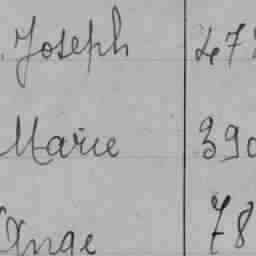 Joseph 47
Marie 390
Ange 78